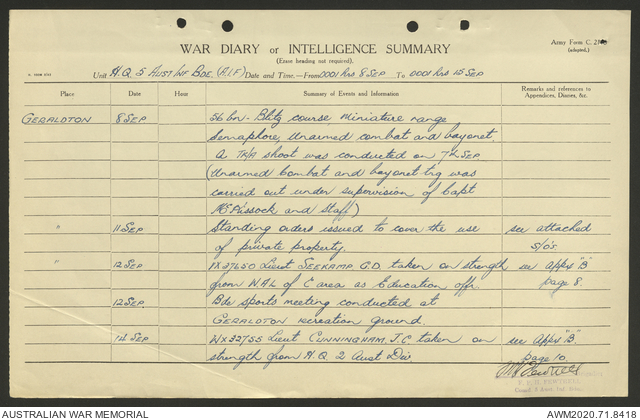 Army Form C. 2118
(adapted.)
WAR DIARY or INTELLIGENCE SUMMARY
(Erase heading not required).
Unit H.Q. 5 AUST INF BDE. (A.I.F) Date and Time.—From 0001 hrs 8 SEP To 0001 hrs 15 SEP
Place Date Hour Summary of Events and Information Remarks and references to Appendices, Diaries, &c.
GERALDTON 8 SEP 56 bn - Blitz course miniature range
semaphore, unarmed combat and bayonet.
A TK/A shoot was conducted on 7th SEP
(Unarmed combat and bayonet trg was
carried out under supervision of Capt
and staff)
" 11 SEP Standing orders issued to cover the use see attached
of private property. S/O's.
" 12 SEP 50 Lieut SEEKAMP. G.D. taken on strength see Appx "B"
from of C area as Education offr. page 8.
12 SEP Bde sports meeting conducted at
GERALDTON recreation ground.
14 SEP WX32755 Lieut CUNNINGHAM. J.C. taken on see Appx "B".
strength from H.Q 2 Aust Div. page 10.
AUSTRALIAN WAR MEMORIAL AWM2020.71.8418